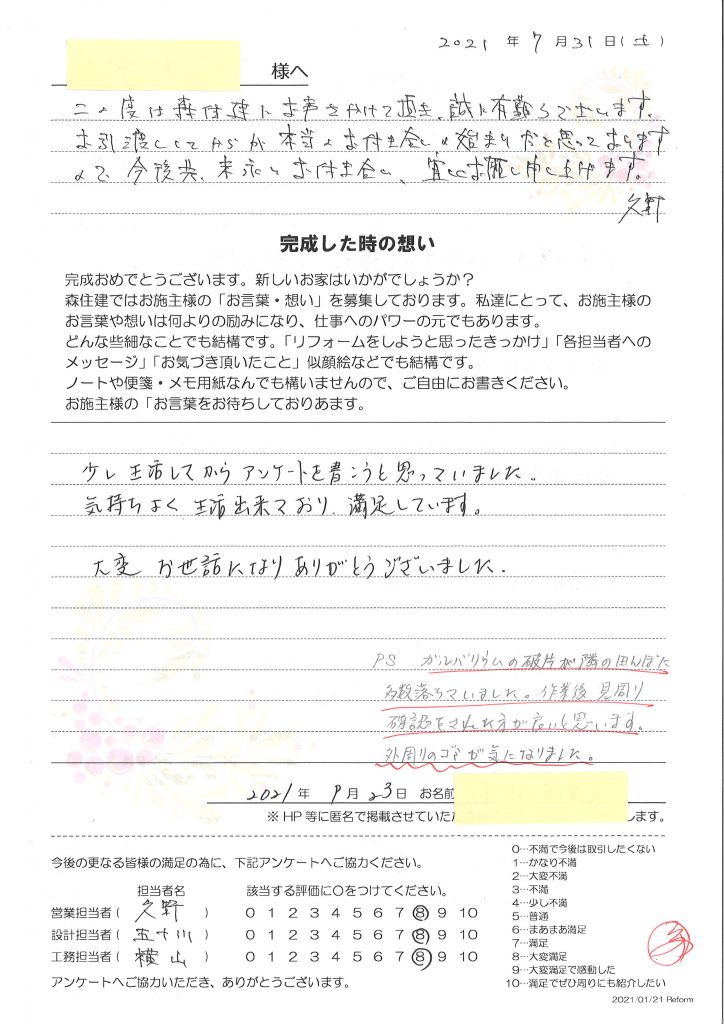 2021 年 7 月 31 日 (土)
様へ
この度は森住建にお声をかけて頂き、誠に有難うございます。
お引渡ししてからが本当のお付き合いの始まりだと思っております
ので、今後共、末永いお付き合い、宜しくお願い申し上げます。
久野
完成した時の想い
完成おめでとうございます。新しいお家はいかがでしょうか？
森住建ではお施主様の「お言葉・想い」を募集しております。私達にとって、お施主様の
お言葉や想いは何よりの励みになり、仕事へのパワーの元でもあります。
どんな些細なことでも結構です。「リフォームをしようと思ったきっかけ」「各担当者への
メッセージ」「お気づき頂いたこと」似顔絵などでも結構です。
ノートや便箋・メモ用紙なんでも構いませんので、ご自由にお書きください。
お施主様の「お言葉をお待ちしておりあます。
少し生活してからアンケートを書こうと思っていました。
気持ちよく生活出来ており、満足しています。
大変お世話になりありがとうございました。
PS ガルバリウムの破片が隣の田んぼに
多数落ちていました。作業後見周り
確認をされた方が良いと思います。
外周りのゴミが気になりました。
2021 年 9 月 23 日 お名前
※ HP 等に匿名で掲載させていただ します。
今後の更なる皆様の満足の為に、下記アンケートへご協力ください。
担当者名 該当する評価に○をつけてください。
営業担当者 ( 久野 ) 0 1 2 3 4 5 6 7 8 9 10
設計担当者 ( 五十川 ) 0 1 2 3 4 5 6 7 8 9 10
工務担当者 ( 横山 ) 0 1 2 3 4 5 6 7 8 9 10
アンケートへご協力いただき、ありがとうございます。
0…不満で今後は取引したくない
1…かなり不満
2…大変不満
3…不満
4…少し不満
5…普通
6…まあまあ満足
7…満足
8…大変満足
9…大変満足で感動した
10…満足でぜひ周りにも紹介したい
2021/01/21 Reform